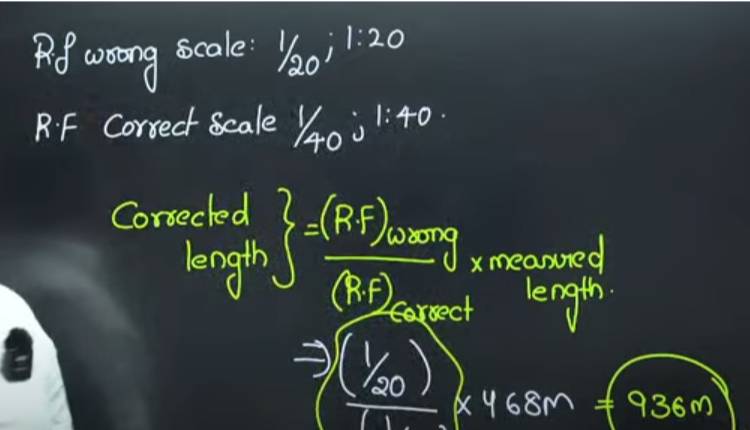 R.f wrong scale: 1/20 ; 1:20
R.F Correct Scale 1/40 ; 1:40.
Corrected length } = (R.F)wrong / (R.F)Correct x measured length.
⇒ (1/20) x 468m = 936m